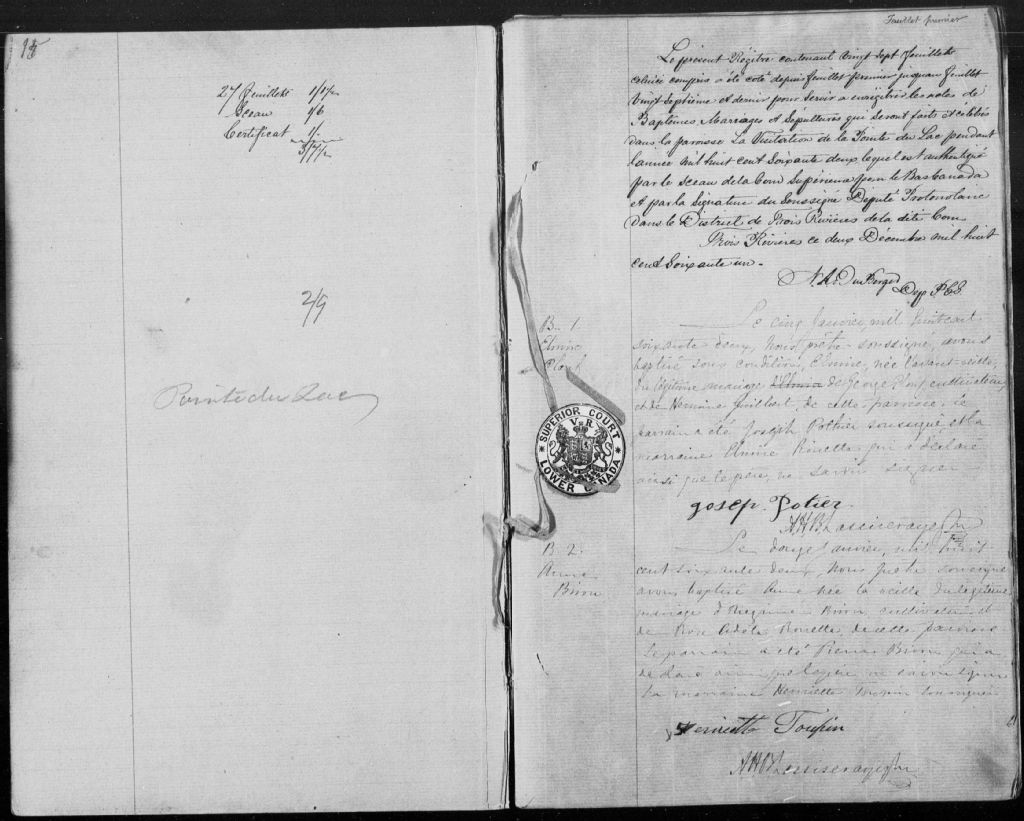 27 Feuillets 1/1½
Sceau 1/6
Certificat 1/.
3/7½
2/9
Pointe du Lac
Feuillet premier
Le présent Régitre contenant vingt sept feuillets
celui ci compris a été coté depuis feuillet premier jusqu'au feuillet
vingt septième et dernier pour servir a enrégitrer les actes de
Baptêmes Mariages et Sépultures qui seront faits et célébrés
dans la paroisse La Visitation de la Pointe du Lac pendant
l'année mil huit cent soixante deux lequel est authentiqué
par le sceau de la Cour Supérieure pour le Bas Canada
et par la signature du soussigné Député Protonotaire
dans le District de Trois Rivières de la dite Cour
Trois Rivières ce deux Décembre mil huit
cent soixante un.
Dep P.C.S.
B. 1.
Elmire
Plouf
SUPERIOR COURT
V R
LOWER CANADA
Le cinq Janvier, mil huit cent
soixante deux, Nous prêtre soussigné, avons
baptisé sous condition, Elmire, née l'avant-veille,
du légitime mariage de George Plouf cultivateur
et de Hermine Guilbert, de cette paroisse. Le
parrain a été Joseph Pothier soussigné, et la
marraine Elmire Rouette qui a déclaré
ainsi que le père, ne savoir signer
Josep. Potier
B. 2.
Anne
Biron
Le douze Janvier, mil huit
cent soixante deux, Nous prêtre soussigné
avons baptisé Anne née la veille du légitime
mariage d' Biron, cultivateur et
de Rose Rouette, de cette paroisse
Le parrain a été Pierre Biron qui a
déclaré ainsi que le père ne savoir signer
La marraine Henriette Toupin soussignée
Henriette Toupin